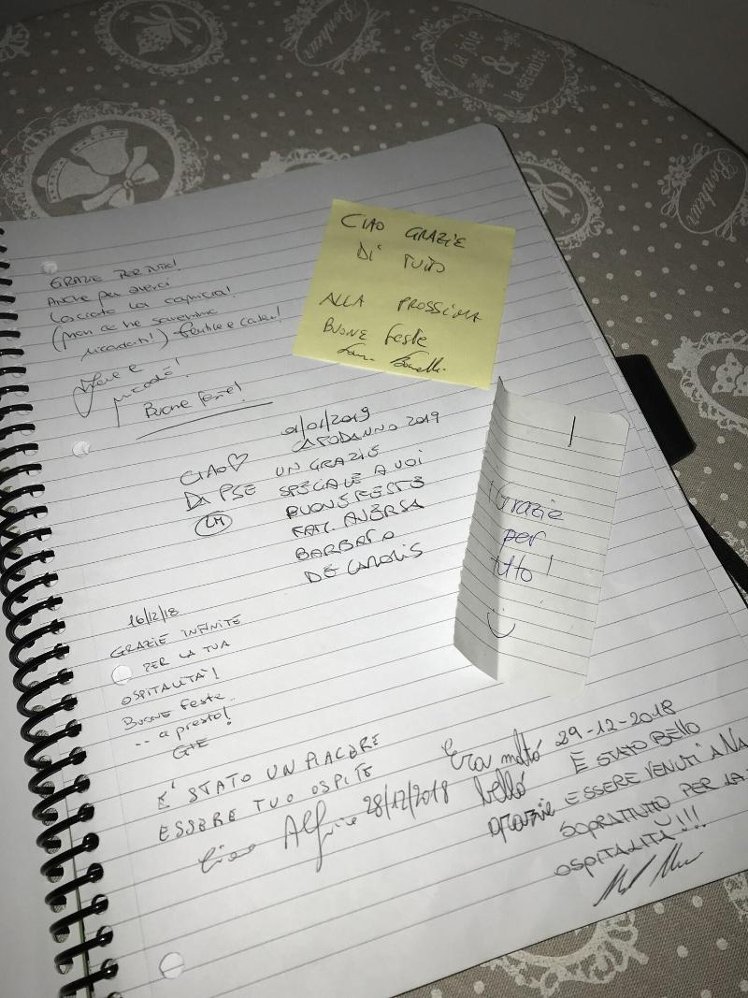 Bonheur
la joie
&
la
Bonheur
GRAZIE PER TUTTO!
Anche per averci
lasciato la
(non ce ne saremmo
!)
!
Buone feste!
CIAO GRAZIE
DI TUTTO
ALLA PROSSIMA
BUONE feste
01/01/2019
CAPODANNO 2019
CIAO♡ UN GRAZIE
DA PSE SPECIALE A VOI
LM BUONE FESTE
FAM. AVERSA
BARBATO
DE CAROLIS
!Grazie
per
tutto!
16/12/18
GRAZIE INFINITE
PER LA TUA
OSPITALITÀ!
BUONE feste
.. a presto!
GIE
E' STATO UN PIACERE
ESSERE TUO OSPITE
Ciao 28/12/2018
Era molto
bello
grazie
29-12-2018
E STATO BELLO
ESSERE VENUTI A NA
SOPRATTUTTO PER LA
OSPITALITÀ!!!